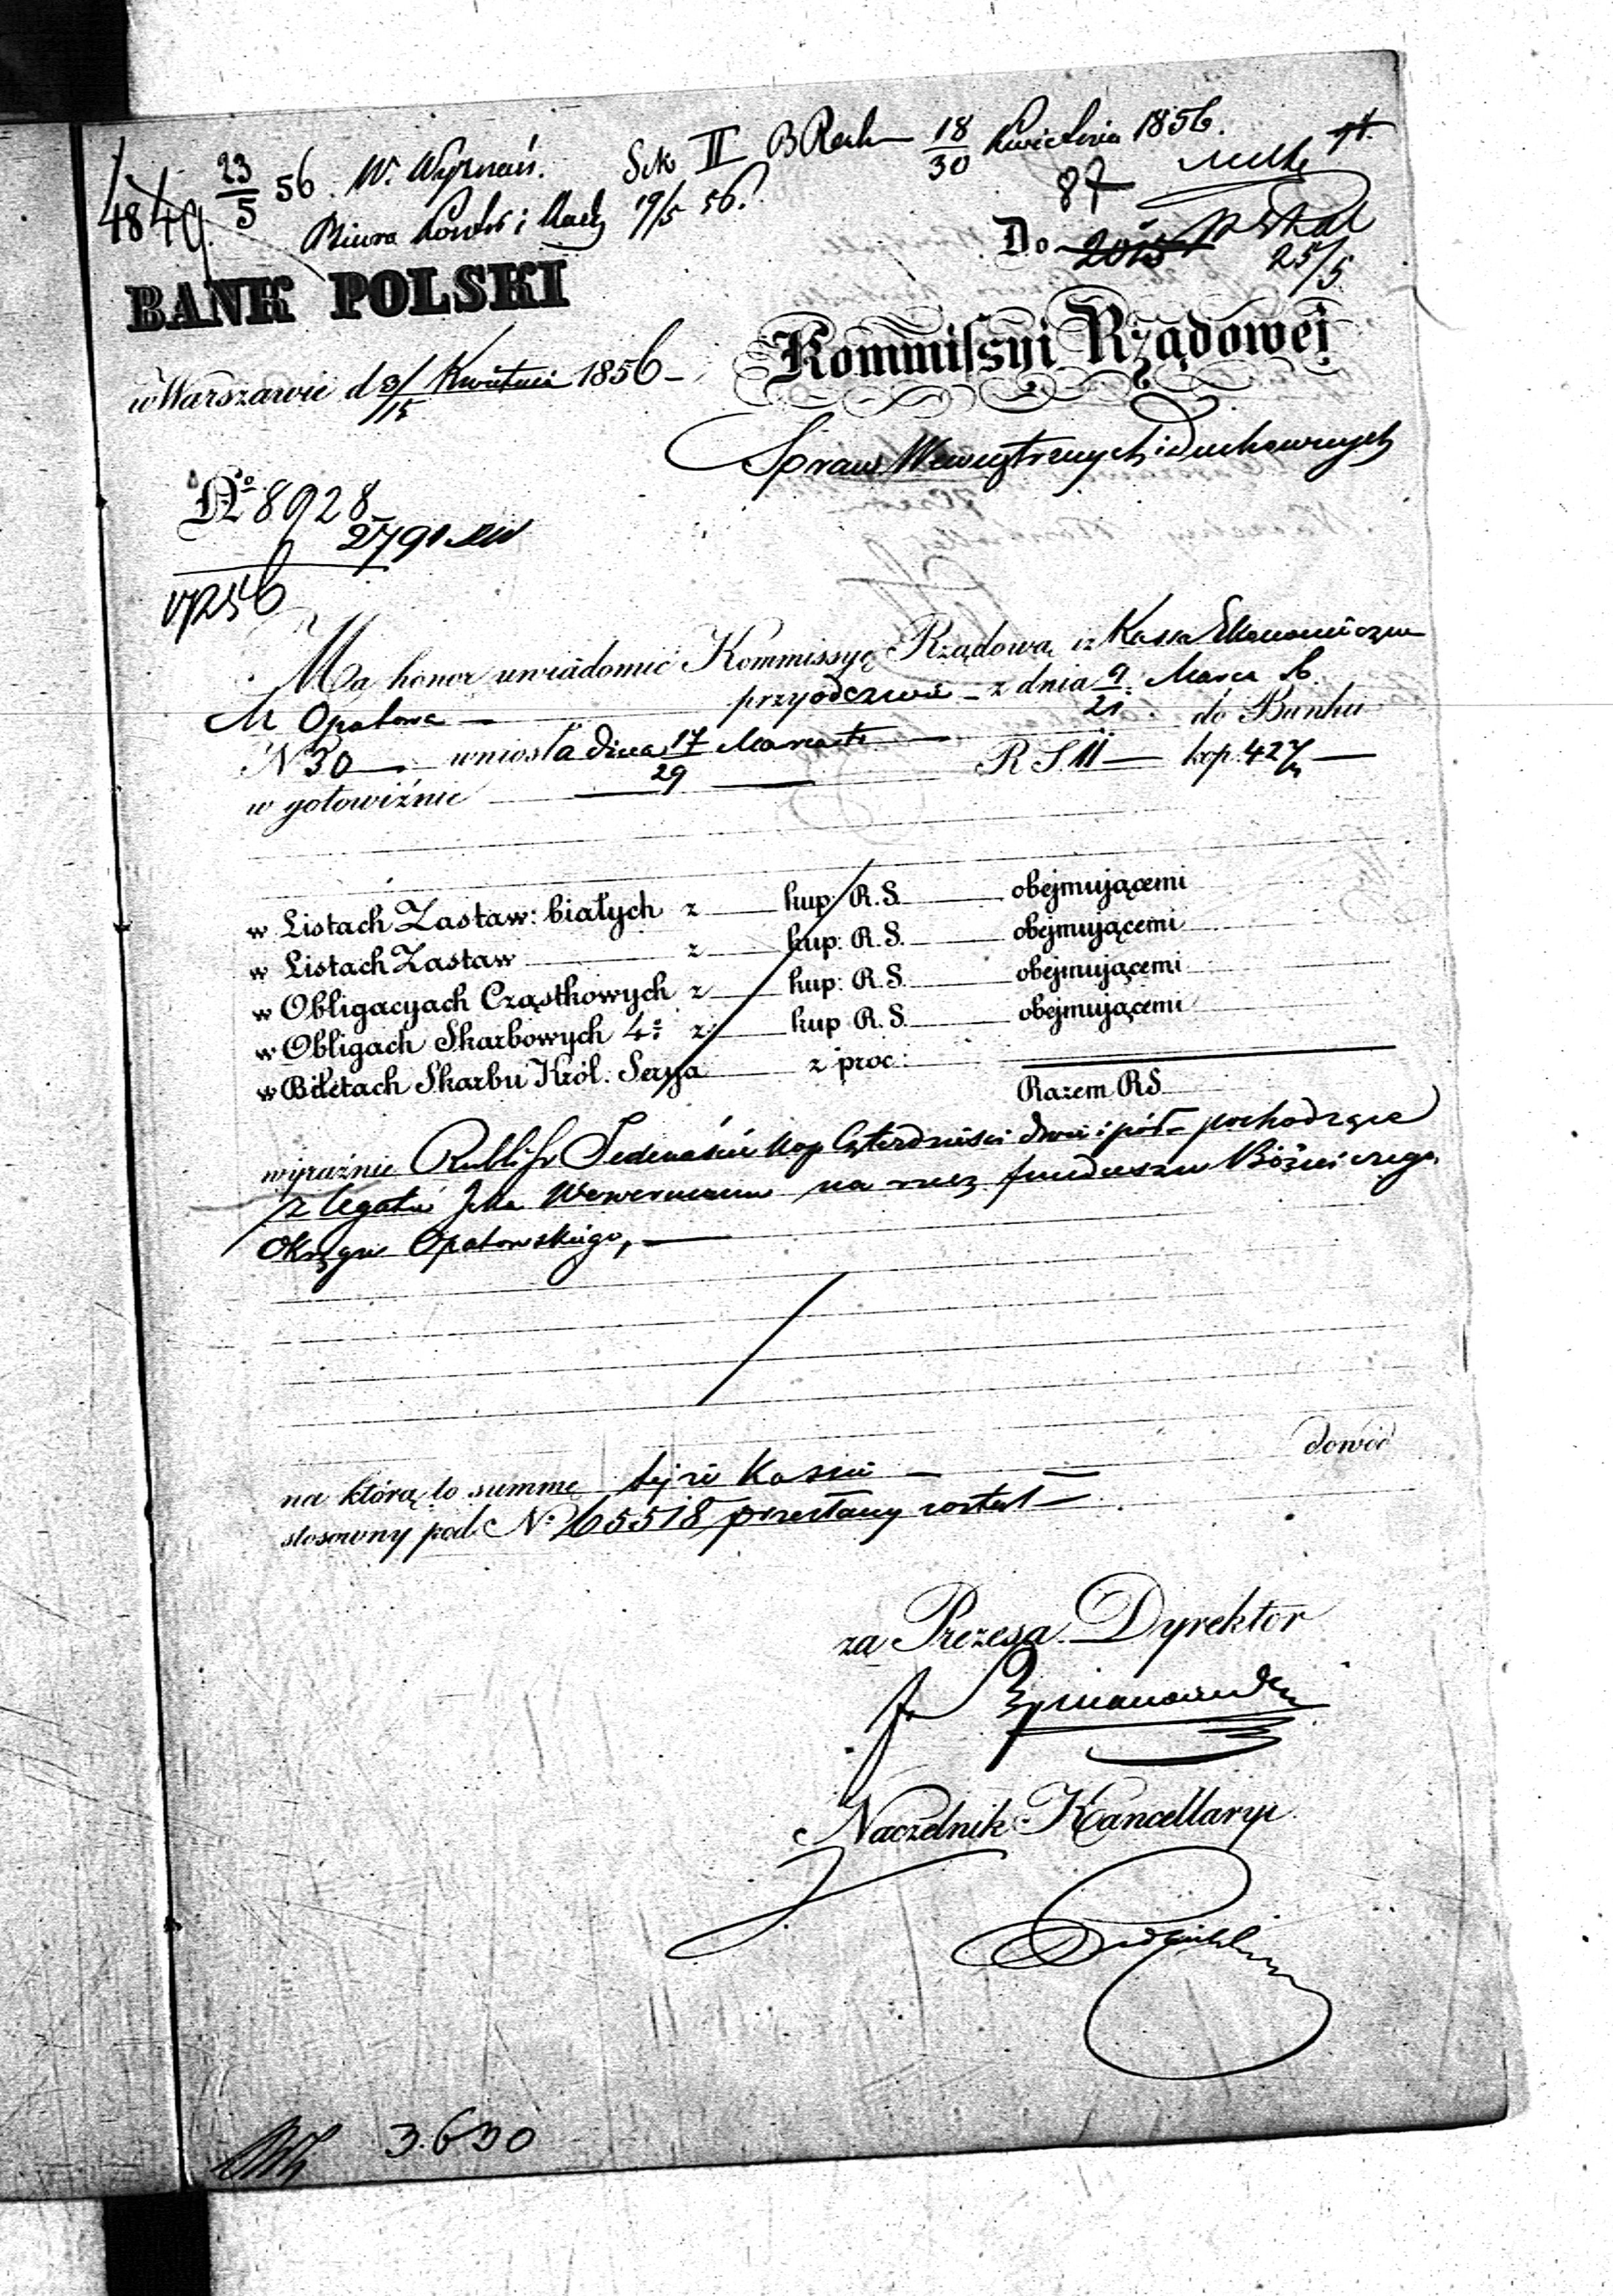 23/5 56. W. Wyznań. Sek II B Rach 18/30 Kwietnia 1856.
4849. Biura Kontr i Rach 19/5 56. 87
Do
25/5
BANK POLSKI
Kommissyi Rządowej
w Warszawie d 3/15 Kwietnia 1856
Spraw Wewnętrznych i Duchownych
No 8928
2791
17256
Ma honor uwiadomić Kommissyę Rządową iż Kassa Ekonomiczna
M Opatowa — przy odezwie - z dnia 9/21 Marca
N 30 — wniosła dnia 17/29 Marca do Banku
w gotowiźnie — R S. 11 — kop. 42 1/2 —
w Listach Zastaw: białych z kup: R.S. obejmującemi
w Listach Zastaw z kup: R.S. obejmującemi
w Obligacyach Cząstkowych z kup: R.S. obejmującemi
w Obligach Skarbowych 4: z kup R.S. obejmującemi
w Biletach Skarbu Król. Serya z proc:
Razem RS
wyraźnie Rubli sr Jedenaście kop Czterdzieści dwie i pół pochodzące
z legatu na rzecz funduszu Bóżniczego
Okręgu Opatowskiego, —
na którą to summę tejże Kassie — dowód
stosowny pod No 65518 przesłany został —
za Prezesa Dyrektor
Naczelnik Kancellaryi
3.630